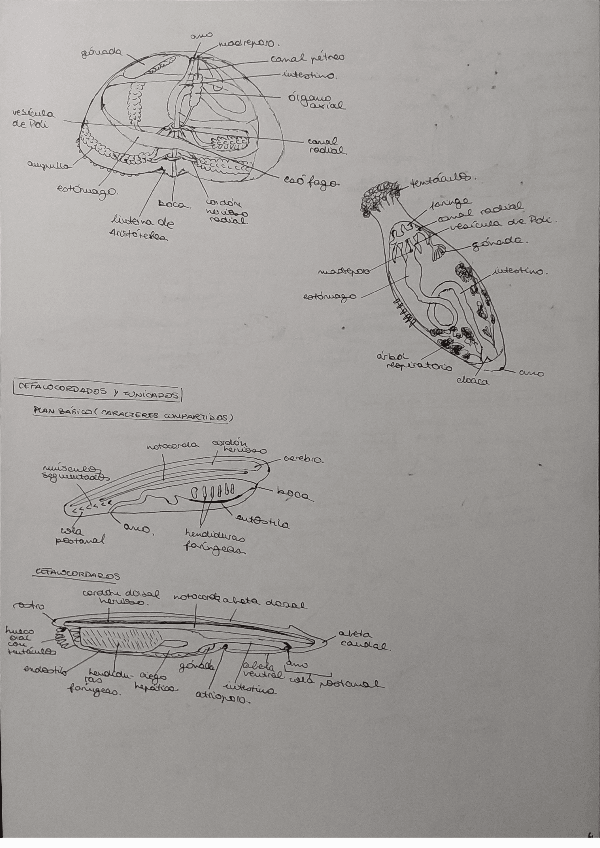 ano
madreporo.
gónada
canal pétreo
intestino.
órgano
axial
vesícula
de Poli
canal
radial
ampulla
esófago
estómago.
boca
cordón
nervioso
radial
linterna de
Aristóteles
tentáculos.
faringe
canal radial
vesícula de Poli.
gónada.
madreporo
intestino.
estómago
árbol
respiratorio
cloaca
ano
CEFALOCORDADOS Y TUNICADOS
PLAN BÁSICO (CARACTERES COMPARTIDOS)
notocorda
cordón
nervioso
cerebro
músculos
segmentados
boca
endostilo
cola
postanal
ano.
hendiduras
faríngeas.
CEFALOCORDADOS
cordón dorsal
nervioso.
notocorda
aleta dorsal
rostro
hueco
oral
con
tentáculos
aleta
caudal
endostilo
hendidu-
ras
faríngeas.
ciego
hepático
gónada
atrioporo.
intestino
aleta
ventral
ano
cola postanal